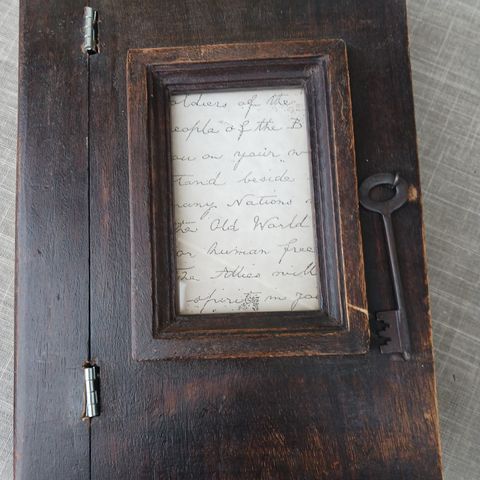 oldiers of the
eople of the B
ou on your w
tand beside
many Nations
the Old World
or human free
the Allies will
spirit in you